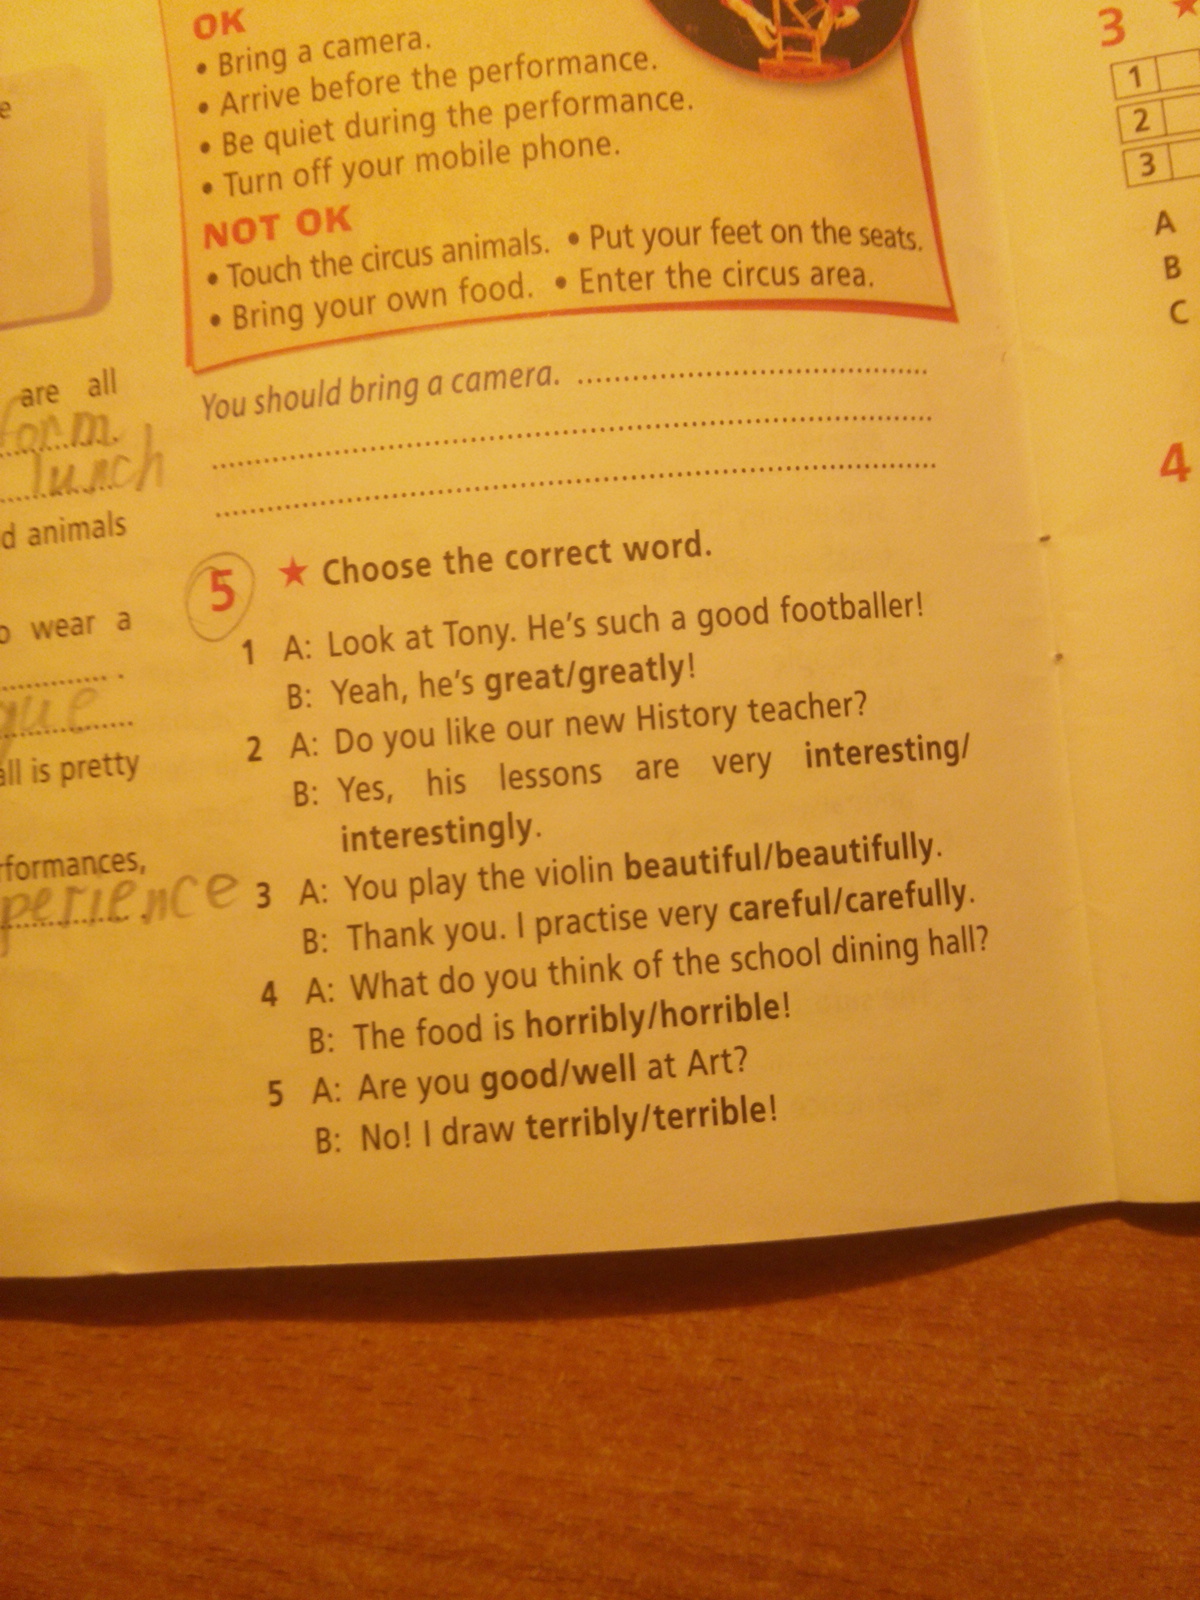 OK
• Bring a camera.
• Arrive before the performance.
• Be quiet during the performance.
• Turn off your mobile phone.
NOT OK
• Touch the circus animals. • Put your feet on the seats.
• Bring your own food. • Enter the circus area.
You should bring a camera.
5 ★ Choose the correct word.
1 A: Look at Tony. He's such a good footballer!
B: Yeah, he's great/greatly!
2 A: Do you like our new History teacher?
B: Yes, his lessons are very interesting/
interestingly.
3 A: You play the violin beautiful/beautifully.
B: Thank you. I practise very careful/carefully.
4 A: What do you think of the school dining hall?
B: The food is horribly/horrible!
5 A: Are you good/well at Art?
B: No! I draw terribly/terrible!
are all
lunch
animals
wear a
is pretty
3
1
2
3
A
B
C
4